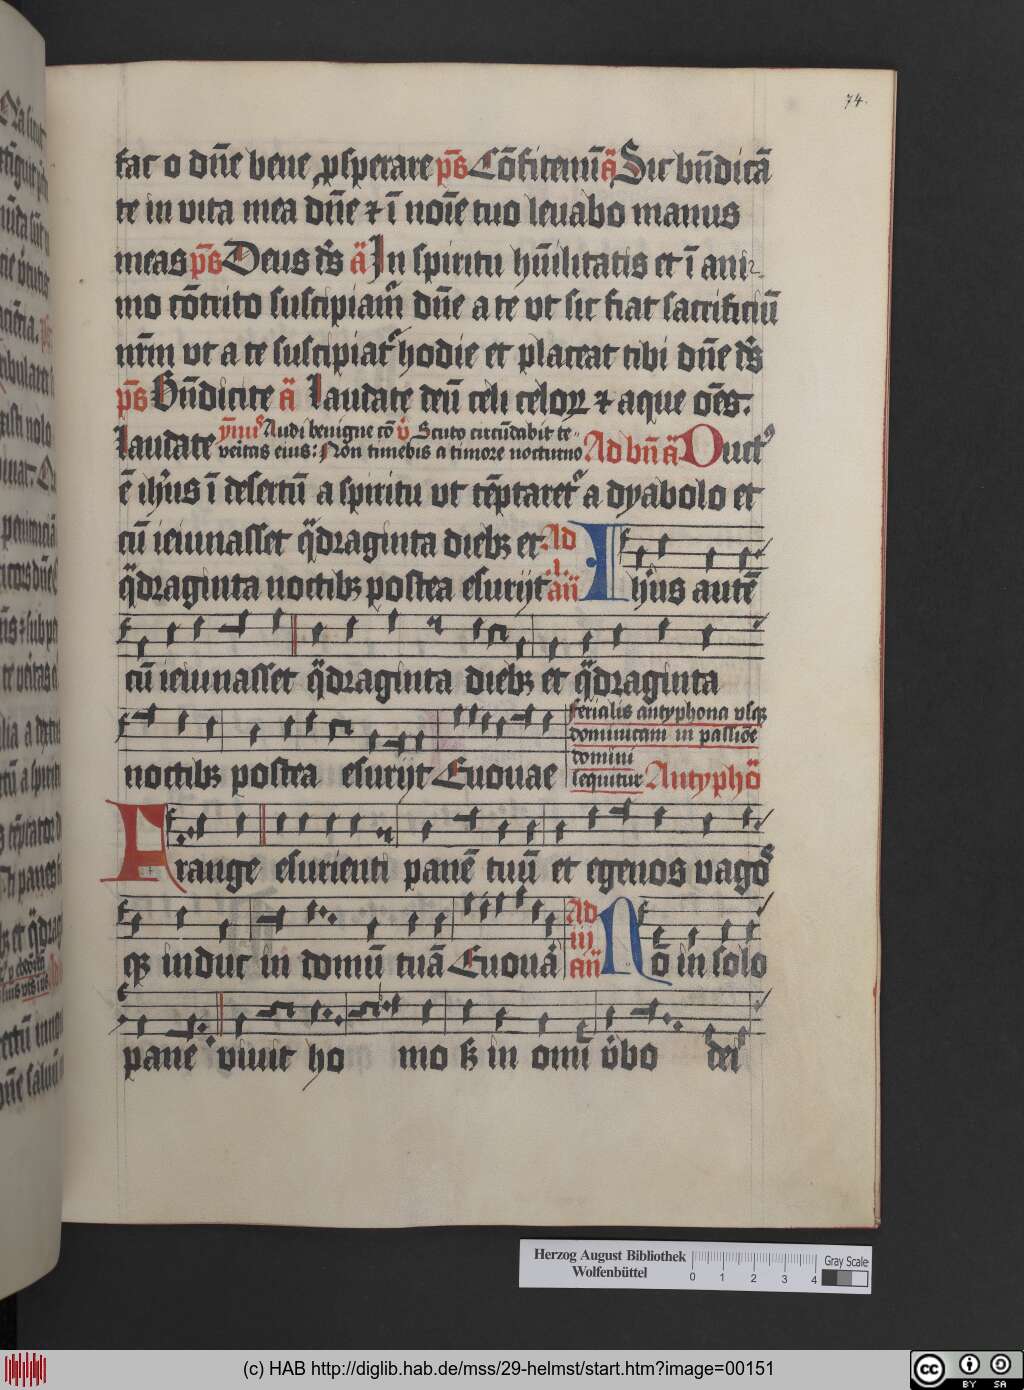 74.
fac o dn̄e bene ꝓsperare p̄s Cōfitemī ā Sic bn̄dicā
te in vita mea dn̄e ⁊ ī noīe tuo levabo manus
meas p̄s Deus ds̄ ā In spiritu hūilitatis et ī ani
mo cōtrito suscipiamr̄ dn̄e a te vt sic fiat sacrificiū
nr̄m vt a te suscipiatr̄ hodie et placeat tibi dn̄e ds̄
p̄s Bn̄dicite ā laudate deū celi celoꝝ ⁊ aque oēs.
laudate ym̄us Audi benigne cō v̄ Scuto circūdabit te
veitas eius: Non timebis a timore nocturno Ad bn̄ ā Duct⁹
ē ihūs ī desertū a spiritu vt tēptaretr̄ a dyabolo et
cū ieiunasset q̄draginta diebꝫ et Ad
q̄draginta noctibꝫ postea esurijt .1. an̄ Ihūs autē
cū ieiunasset q̄draginta diebꝫ et q̄draginta
ferialis antyphona vsqꝫ
dominicam in passiōe
domini
noctibꝫ postea esurijt Euouae sequitur Antyphō
Frange esurienti panē tuū et egenos vagos
qꝫ induc in domū tuā Euouā Ad in an̄ Nō in solo
pane viuit ho mo sꝫ in omī v̄bo dei
Herzog August Bibliothek
Wolfenbüttel
0 1 2 3 4
Gray Scale
(c) HAB http://diglib.hab.de/mss/29-helmst/start.htm?image=00151
cc BY SA